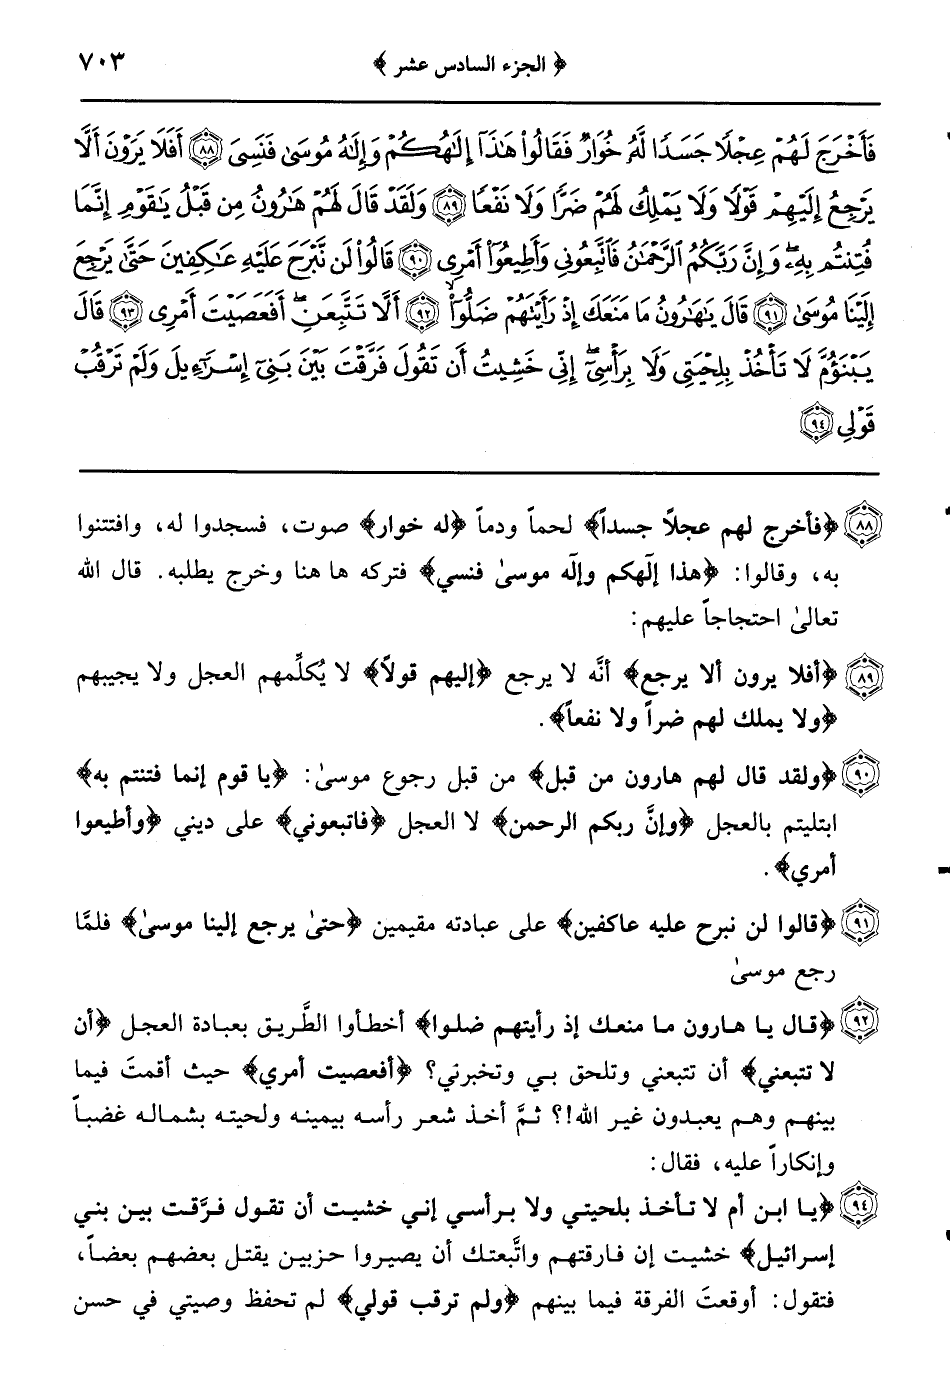 ﴿ الجزء السادس عشر ﴾ ٧٠٣
فَأَخْرَجَ لَهُمْ عِجْلًا جَسَدًا لَّهُ خُوَارٌ فَقَالُوا هَٰذَا إِلَٰهُكُمْ وَإِلَٰهُ مُوسَىٰ فَنَسِيَ ٨٨ أَفَلَا يَرَوْنَ أَلَّا
يَرْجِعُ إِلَيْهِمْ قَوْلًا وَلَا يَمْلِكُ لَهُمْ ضَرًّا وَلَا نَفْعًا ٨٩ وَلَقَدْ قَالَ لَهُمْ هَٰرُونُ مِن قَبْلُ يَٰقَوْمِ إِنَّمَا
فُتِنتُم بِهِۦ ۖ وَإِنَّ رَبَّكُمُ الرَّحْمَٰنُ فَاتَّبِعُونِي وَأَطِيعُوٓا أَمْرِي ٩٠ قَالُوا لَن نَّبْرَحَ عَلَيْهِ عَٰكِفِينَ حَتَّىٰ يَرْجِعَ
إِلَيْنَا مُوسَىٰ ٩١ قَالَ يَٰهَٰرُونُ مَا مَنَعَكَ إِذْ رَأَيْتَهُمْ ضَلُّوٓا ٩٢ أَلَّا تَتَّبِعَنِ ۖ أَفَعَصَيْتَ أَمْرِي ٩٣ قَالَ
يَبْنَؤُمَّ لَا تَأْخُذْ بِلِحْيَتِي وَلَا بِرَأْسِيٓ ۖ إِنِّي خَشِيتُ أَن تَقُولَ فَرَّقْتَ بَيْنَ بَنِيٓ إِسْرَٰٓءِيلَ وَلَمْ تَرْقُبْ
قَوْلِي ٩٤
٨٨ ﴿فأخرج لهم عجلاً جسداً﴾ لحماً ودماً ﴿له خوار﴾ صوت، فسجدوا له، وافتتنوا
به، وقالوا: ﴿هذا إلٰهكم وإلٰه موسىٰ فنسي﴾ فتركه ها هنا وخرج يطلبه. قال الله
تعالىٰ احتجاجاً عليهم:
٨٩ ﴿أفلا يرون ألا يرجع﴾ أنَّه لا يرجع ﴿إليهم قولاً﴾ لا يُكلِّمهم العجل ولا يجيبهم
﴿ولا يملك لهم ضراً ولا نفعاً﴾.
٩٠ ﴿ولقد قال لهم هارون من قبل﴾ من قبل رجوع موسىٰ: ﴿يا قوم إنما فتنتم به﴾
ابتليتم بالعجل ﴿وإنَّ ربكم الرحمن﴾ لا العجل ﴿فاتبعوني﴾ على ديني ﴿وأطيعوا
أمري﴾.
٩١ ﴿قالوا لن نبرح عليه عاكفين﴾ على عبادته مقيمين ﴿حتىٰ يرجع إلينا موسىٰ﴾ فلمَّا
رجع موسىٰ
٩٢ ﴿قال يا هارون ما منعك إذ رأيتهم ضلوا﴾ أخطأوا الطَّريق بعبادة العجل ﴿أن
لا تتبعني﴾ أن تتبعني وتلحق بي وتخبرني؟ ﴿أفعصيت أمري﴾ حيث أقمتَ فيما
بينهم وهم يعبدون غير الله!؟ ثمَّ أخذ شعر رأسه بيمينه ولحيته بشماله غضباً
وإنكاراً عليه، فقال:
٩٤ ﴿يا ابن أم لا تأخذ بلحيتي ولا برأسي إني خشيت أن تقول فرَّقت بين بني
إسرائيل﴾ خشيت إن فارقتهم واتَّبعتك أن يصيروا حزبين يقتل بعضهم بعضاً،
فتقول: أوقعتَ الفرقة فيما بينهم ﴿ولم ترقب قولي﴾ لم تحفظ وصيتي في حسن